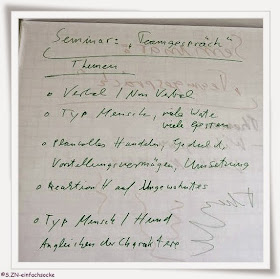 Seminar: „Teamgespräch“
Themen
• Verbal / Non Verbal
• Typ Mensch, viele Worte
viele Gesten
• planvolles Handeln, Geduld,
Vorstellungsvermögen, Umsetzung
• Reaktion H auf Ungewohntes
• Typ Mensch / Hund
Angleichen der Charaktere
©S.ZN-einfachsocke